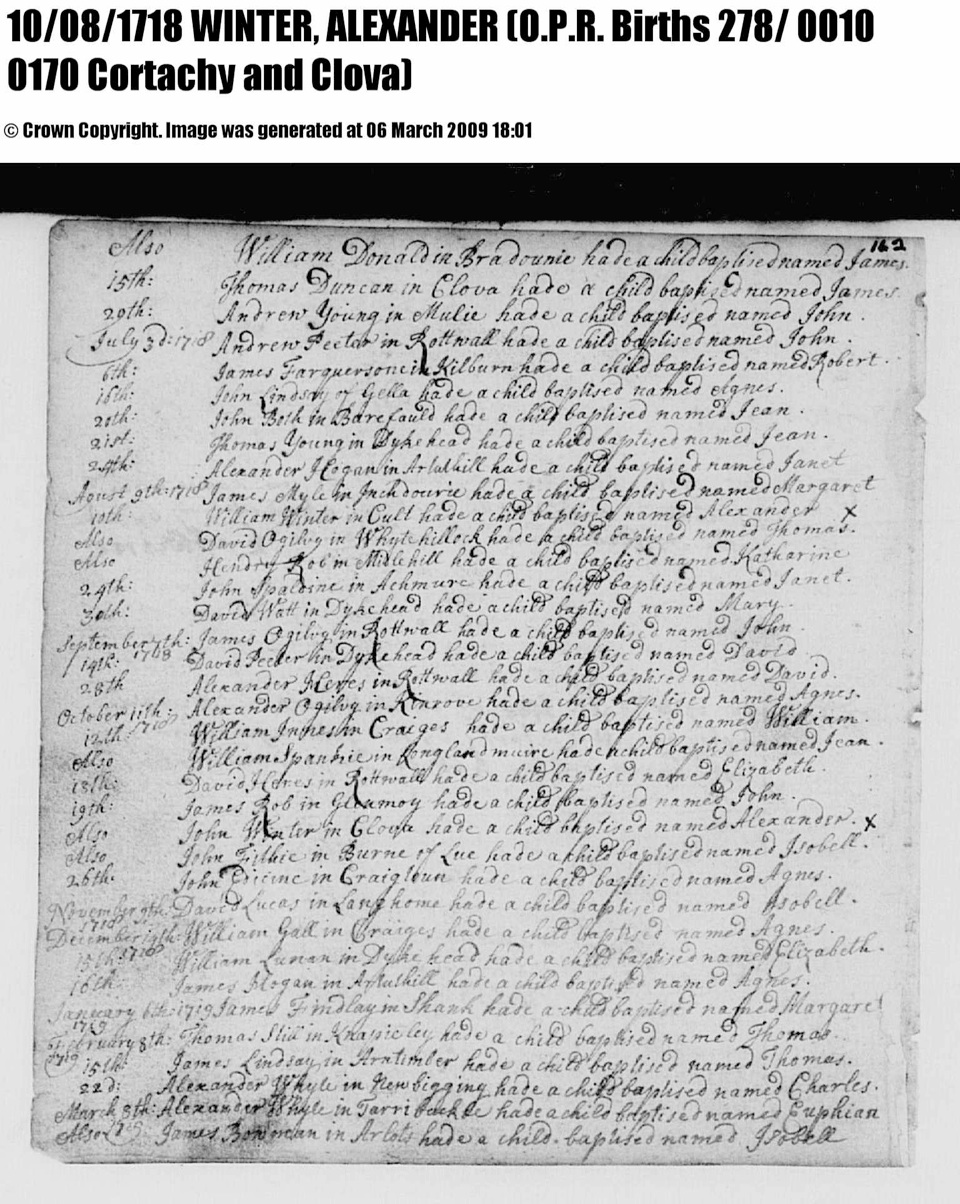 10/08/1718 WINTER, ALEXANDER (O.P.R. Births 278/ 0010
0170 Cortachy and Clova)
© Crown Copyright. Image was generated at 06 March 2009 18:01
162
Also William Donald in Bradounie hade a child baptised named James.
15th: Thomas Duncan in Clova hade a child baptised named James
29th: Andrew Young in Mulie hade a child baptised named John.
July 3d: 1718 Andrew Peeter in Rottwall hade a child baptised named John.
6th: James Farquersone in Kilburn hade a child baptised named Robert.
16th: John Lindsay of Gella hade a child baptised named Agnes.
20th: John Both in Barefauld hade a child baptised named Jean.
21st: Thomas Young in Dykehead hade a child baptised named Jean.
24th: Alexander Hogan in Artushill hade a child baptised named Janet
Agust 9th: 1718 James Myle in Inchdourie hade a child baptised named Margaret
10th: William Winter in Cult hade a child baptised named Alexander x
Also David Ogilvy in Whytehillock hade a child baptised named Thomas.
Also Hendry Rob in Midlehill hade a child baptised named Katharine
24th: John Spaldine in Achmure hade a child baptised named Janet.
30th: David Watt in Dykehead hade a child baptised named Mary.
September 7th: 1718 James Ogilvy in Rottwall hade a child baptised named John
14th: David Peeter in Dykehead hade a child baptised named David
28th Alexander Heres in Rottwall hade a child baptised named David.
October 11th: 1718 Alexander Ogilvy in Kinrove hade a child baptised named Agnes.
12th William Innes in Craiges hade a child baptised named William.
Also William Spannie in Longlandmuire hade a child baptised named Jean.
David Heres in Rottwall hade a child baptised named Elizabeth.
19th: James Rob in Glenmoy hade a child baptised named John.
Also John Winter in Clova hade a child baptised named Alexander. x
Also John Fithie in Burne of Luc hade a child baptised named Isobell.
26th: John in Craigtoun hade a child baptised named Agnes.
November 9th: 1718 David Lucas in Langhome hade a child baptised named Isobell.
December 14th: 1718 William Gall in Craiges hade a child baptised named Agnes.
15th William Lunan in Dykehead hade a child baptised named Elizabeth.
16th James Hogan in Artushill hade a child baptised named Agnes.
Janeuary 6th: 1719 James Findlay in Shank hade a child baptised named Margaret
February 8th: 1719 Thomas Still in hade a child baptised named Thomas.
15th: James Lindsay in Arntimber hade a child baptised named Thomas.
22d: Alexander Whyte in Newbigging hade a child baptised named Charles.
March 8th: Alexander Whyte in Tarribuckle hade a child baptised named Euphian
Also James Bowman in Arlots hade a child baptised named Isobell